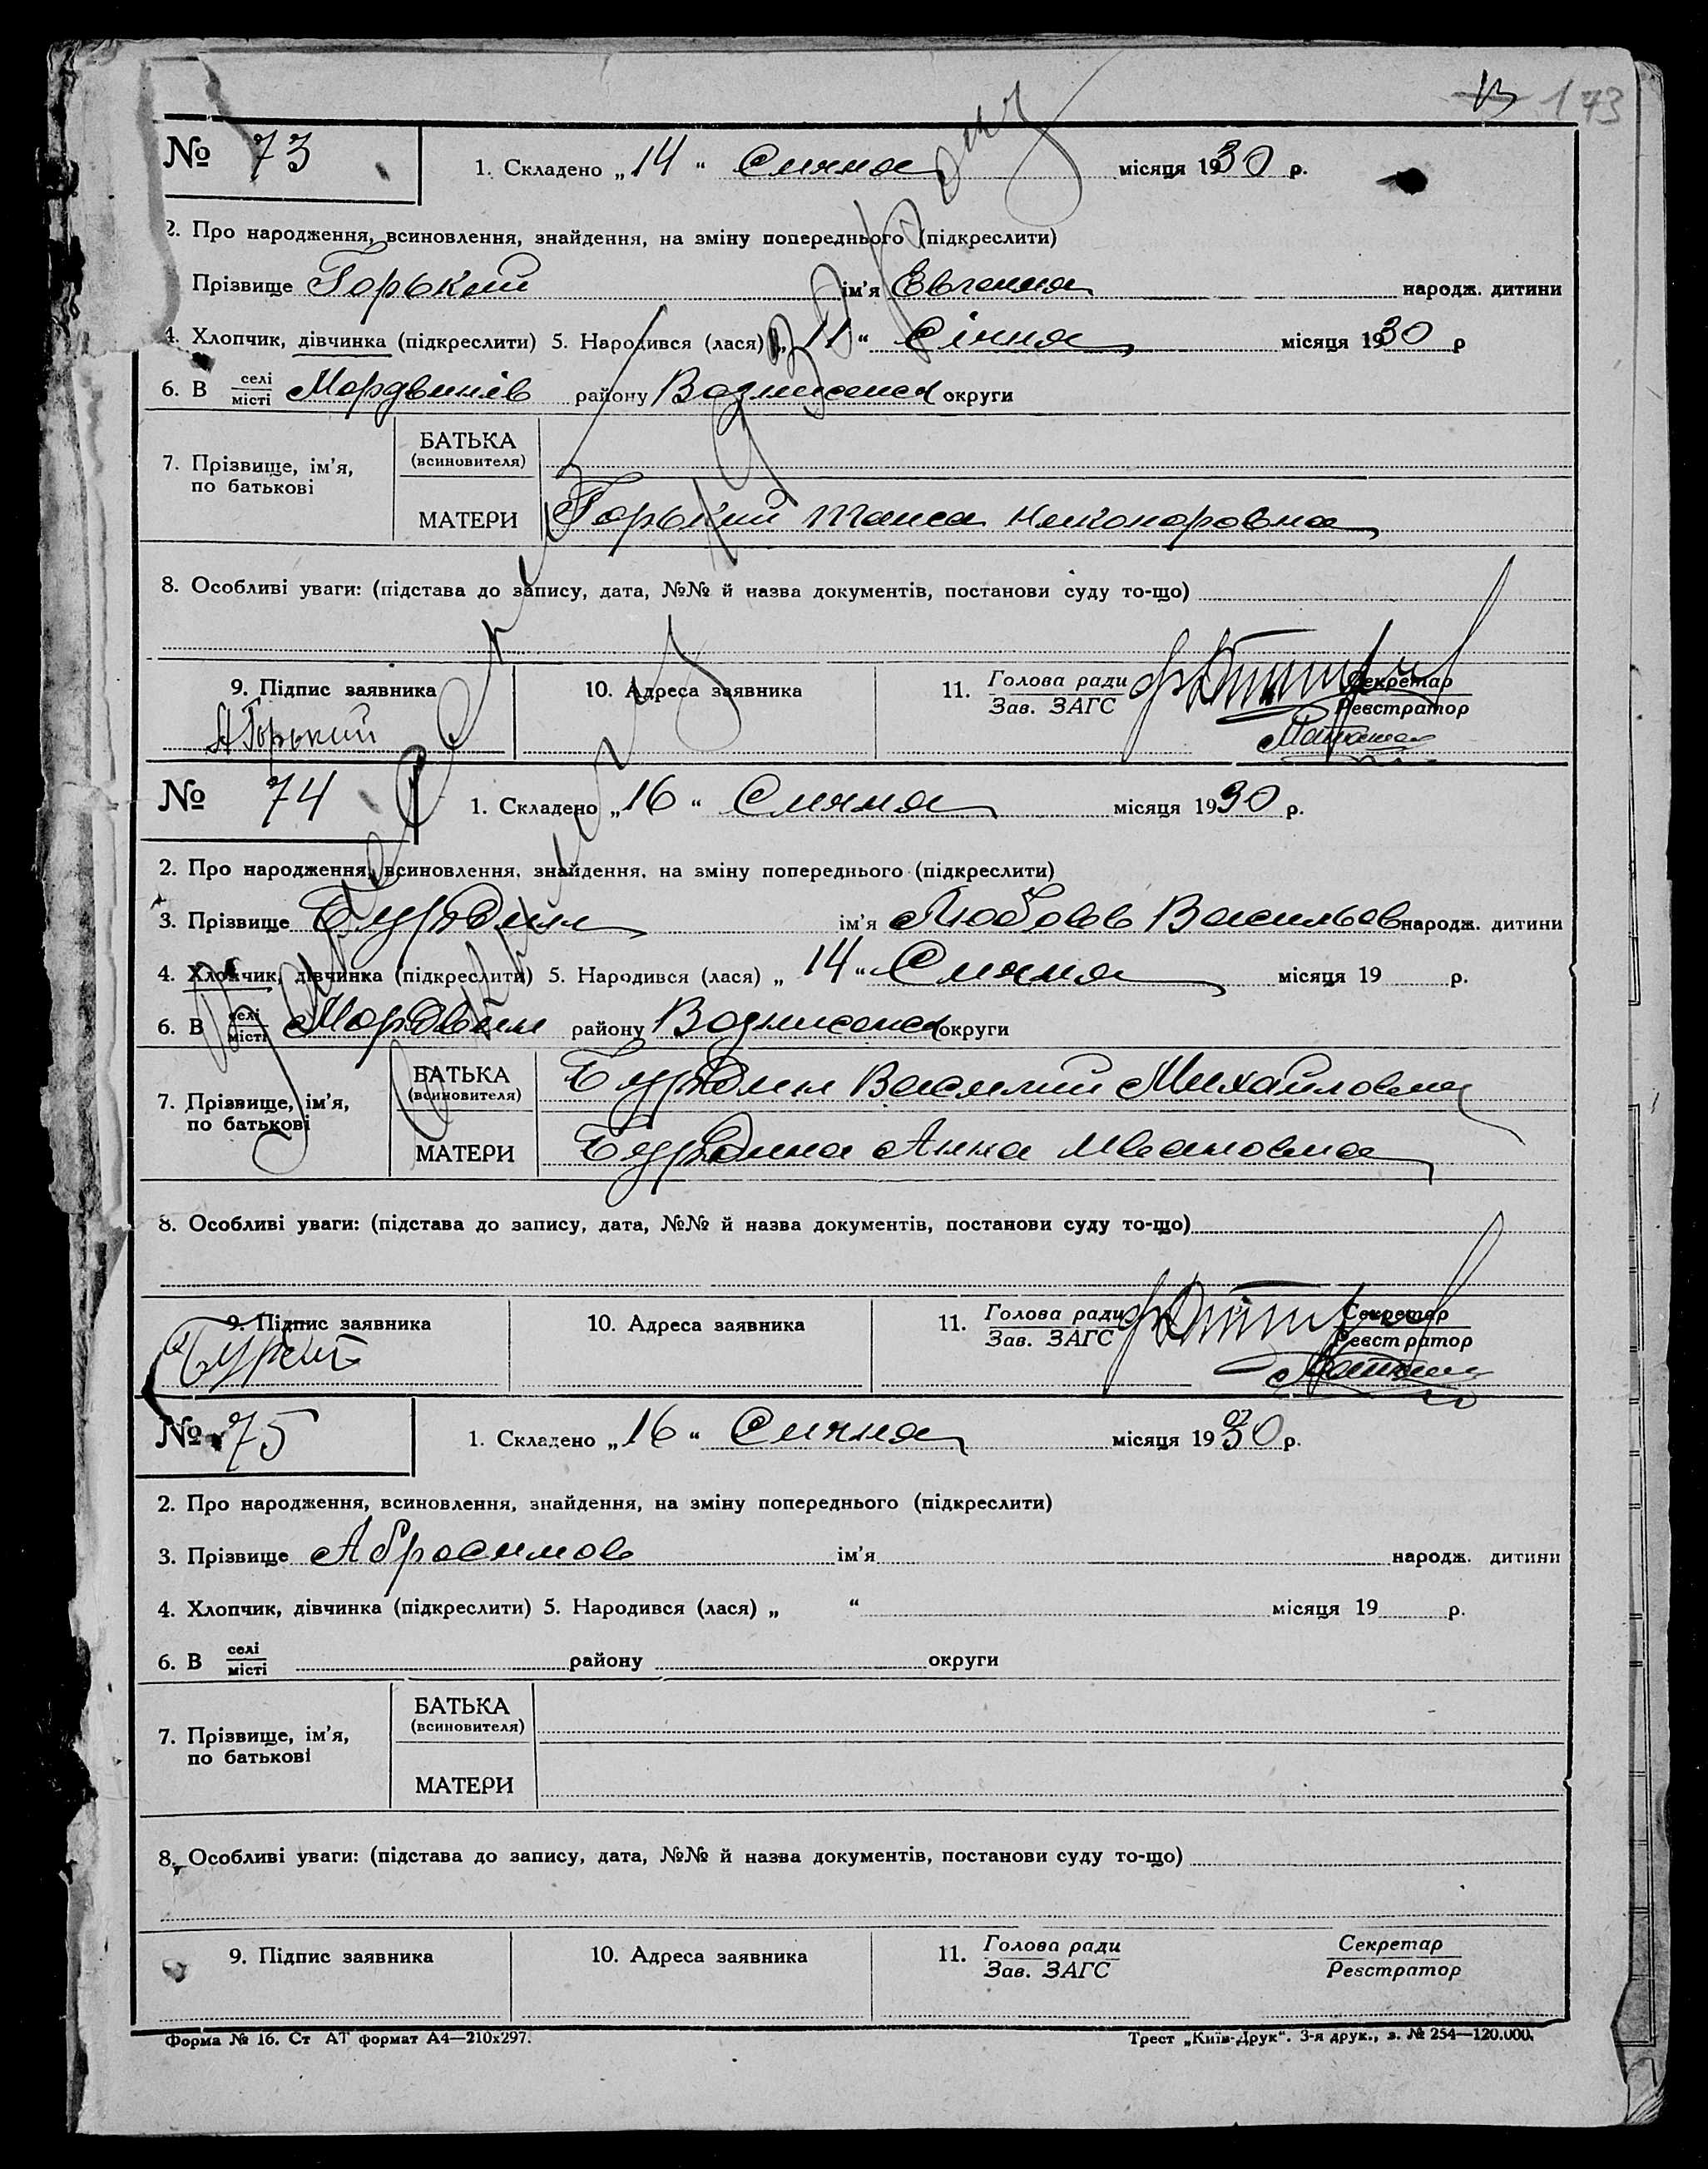 173
№ 73
1. Складено „14“ Сичня місяця 1930 р.
2. Про народження, всиновлення, знайдення, на зміну попереднього (підкреслити)
Прізвище Горький ім'я Евгения народж. дитини
4. Хлопчик, дівчинка (підкреслити) 5. Народився (лася) „11“ Січня місяця 1930 р
6. В селі/місті Мордвинів району Вознисенск округи
7. Прізвище, ім'я, по батькові
БАТЬКА (всиновителя)
МАТЕРИ Горький Таиса Никоноровна
8. Особливі уваги: (підстава до запису, дата, №№ й назва документів, постанови суду то-що)
9. Підпис заявника 10. Адреса заявника 11. Голова ради/Зав. ЗАГС Секретар/Реєстратор
Горький
№ 74
1. Складено „16“ Сичня місяця 1930 р.
2. Про народження, всиновлення, знайдення, на зміну попереднього (підкреслити)
3. Прізвище Бурдин ім'я Любовь Васильев народж. дитини
4. Хлопчик, дівчинка (підкреслити) 5. Народився (лася) „14“ Сичня місяця 19 р.
6. В селі/місті Мордвин району Вознисенск округи
7. Прізвище, ім'я, по батькові
БАТЬКА (всиновителя) Бурдин Василий Михайлович
МАТЕРИ Бурдина Анна Ивановна
8. Особливі уваги: (підстава до запису, дата, №№ й назва документів, постанови суду то-що)
9. Підпис заявника 10. Адреса заявника 11. Голова ради/Зав. ЗАГС Секретар/Реєстратор
№ 75
1. Складено „16“ Сичня місяця 1930 р.
2. Про народження, всиновлення, знайдення, на зміну попереднього (підкреслити)
3. Прізвище Абросимов ім'я народж. дитини
4. Хлопчик, дівчинка (підкреслити) 5. Народився (лася) „ “ місяця 19 р.
6. В селі/місті району округи
7. Прізвище, ім'я, по батькові
БАТЬКА (всиновителя)
МАТЕРИ
8. Особливі уваги: (підстава до запису, дата, №№ й назва документів, постанови суду то-що)
9. Підпис заявника 10. Адреса заявника 11. Голова ради/Зав. ЗАГС Секретар/Реєстратор
Форма № 16. Ст АТ формат А4—210х297. Трест „Київ-Друк“. 3-я друк., з. № 254—120.000.